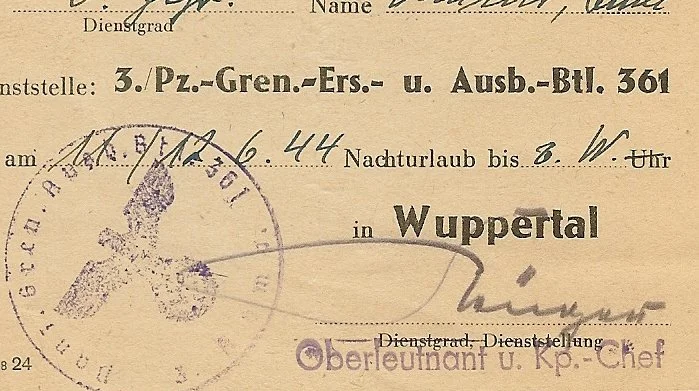 Name
Dienstgrad
nststelle: 3./Pz.-Gren.-Ers.- u. Ausb.-Btl. 361
am 11./12.6.44 Nachturlaub bis z. W. Uhr
in Wuppertal
Dienstgrad, Dienststellung
Oberleutnant u. Kp.-Chef
24
Panz. Gren. Ausb. Btl. 361